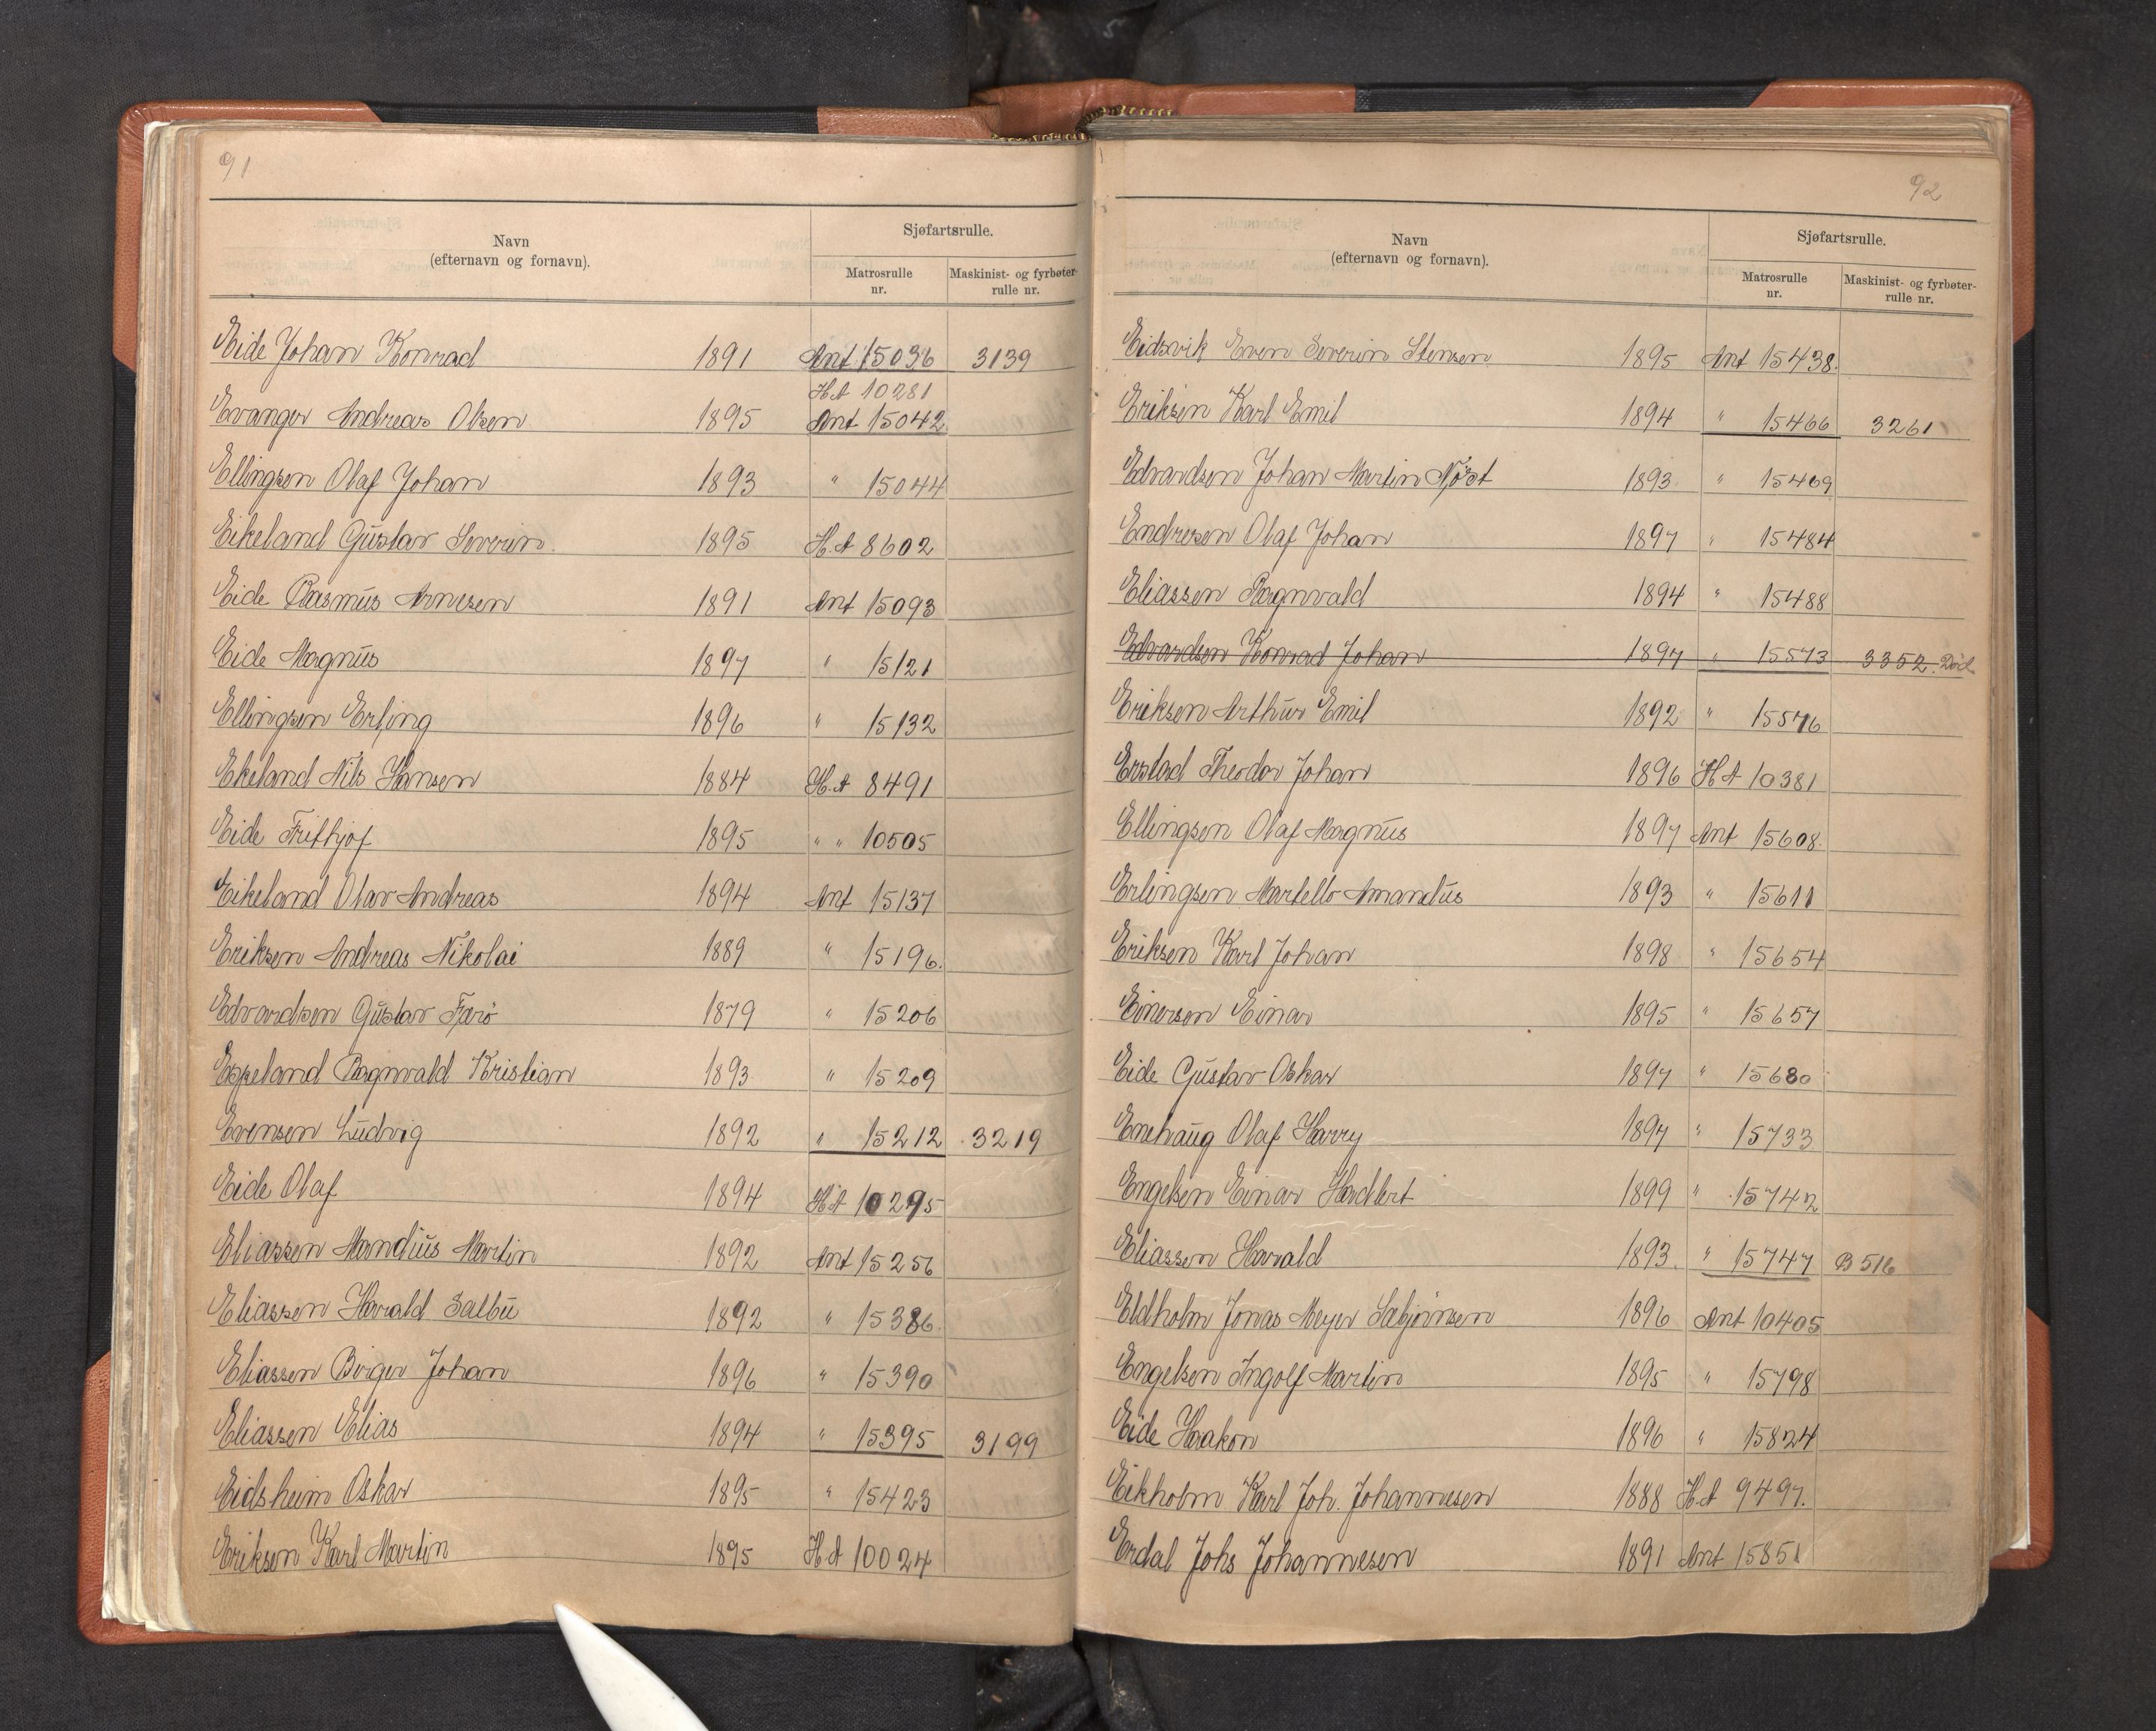 91
Navn
(efternavn og fornavn).
Sjøfartsrulle.
Matrosrulle
nr.
Maskinist- og fyrbøter-
rulle nr.
Eide Johan Konrad 1891 Ant 15036 3139
H.A 10281
Evanger Andreas Olsen 1895 Ant 15042
Ellingsen Olaf Johan 1893 " 15044
Eikeland Gustav Severin 1895 H.A 8602
Eide Rasmus Arnesen 1891 Ant 15093
Eide Magnus 1897 " 15121
Ellingsen Erling 1896 " 15132
Ekeland Nils Hansen 1884 H.A 8491
Eide Frithjof 1895 " " 10505
Eikeland Olav Andreas 1894 Ant 15137
Eriksen Andreas Nikolai 1889 " 15196.
Edvardsen Gustav Farö 1879 " 15206
Espeland Ragnvald Kristian 1893 " 15209
Evensen Ludvig 1892 " 15212 3219
Eide Olaf 1894 H.A 10295
Eliassen Mandius Martin 1892 Ant 15256
Eliassen Harald Salbu 1892 " 15386.
Eliassen Birger Johan 1896 " 15390
Eliassen Elias 1894 " 15395 3199
Eidsheim Oskar 1895 " 15423
Eriksen Karl Martin 1895 H.A 10024
92
Navn
(efternavn og fornavn).
Sjøfartsrulle.
Matrosrulle
nr.
Maskinist- og fyrbøter-
rulle nr.
Eidsvik Even Severin Stensen 1895 Ant 15438.
Eriksen Karl Emil 1894 " 15466 3261
Edvardsen Johan Martin 1893 " 15469
Endresen Olaf Johan 1897 " 15484
Eliassen Ragnvald 1894 " 15488
Edvardsen Konrad Johan 1897 " 15573 3352. Död
Eriksen Arthur Emil 1892 " 15576
Erstad Theodor Johan 1896 H.A 10381
Ellingsen Olaf Magnus 1897 Ant 15608.
Erlingsen Martello Amandus 1893 " 15611
Eriksen Karl Johan 1898 " 15654
Einersen Einar 1895 " 15657
Eide Gustav Oskar 1897 " 15680
Enehaug Olaf Harry 1897 " 15733
Engelsen Einar Hadlert 1899 " 15742
Eliassen Harald 1893. " 15747 B 516
Eldholm Jonas Meyer Sabjörnsen 1896 Ant 10405
Engelsen Ingolf Martin 1895 " 15798
Eide Haakon 1896 " 15824
Eikholm Karl Joh. Johannesen 1888 H.A 9497.
Erdal Johs Johannesen 1891 Ant 15851